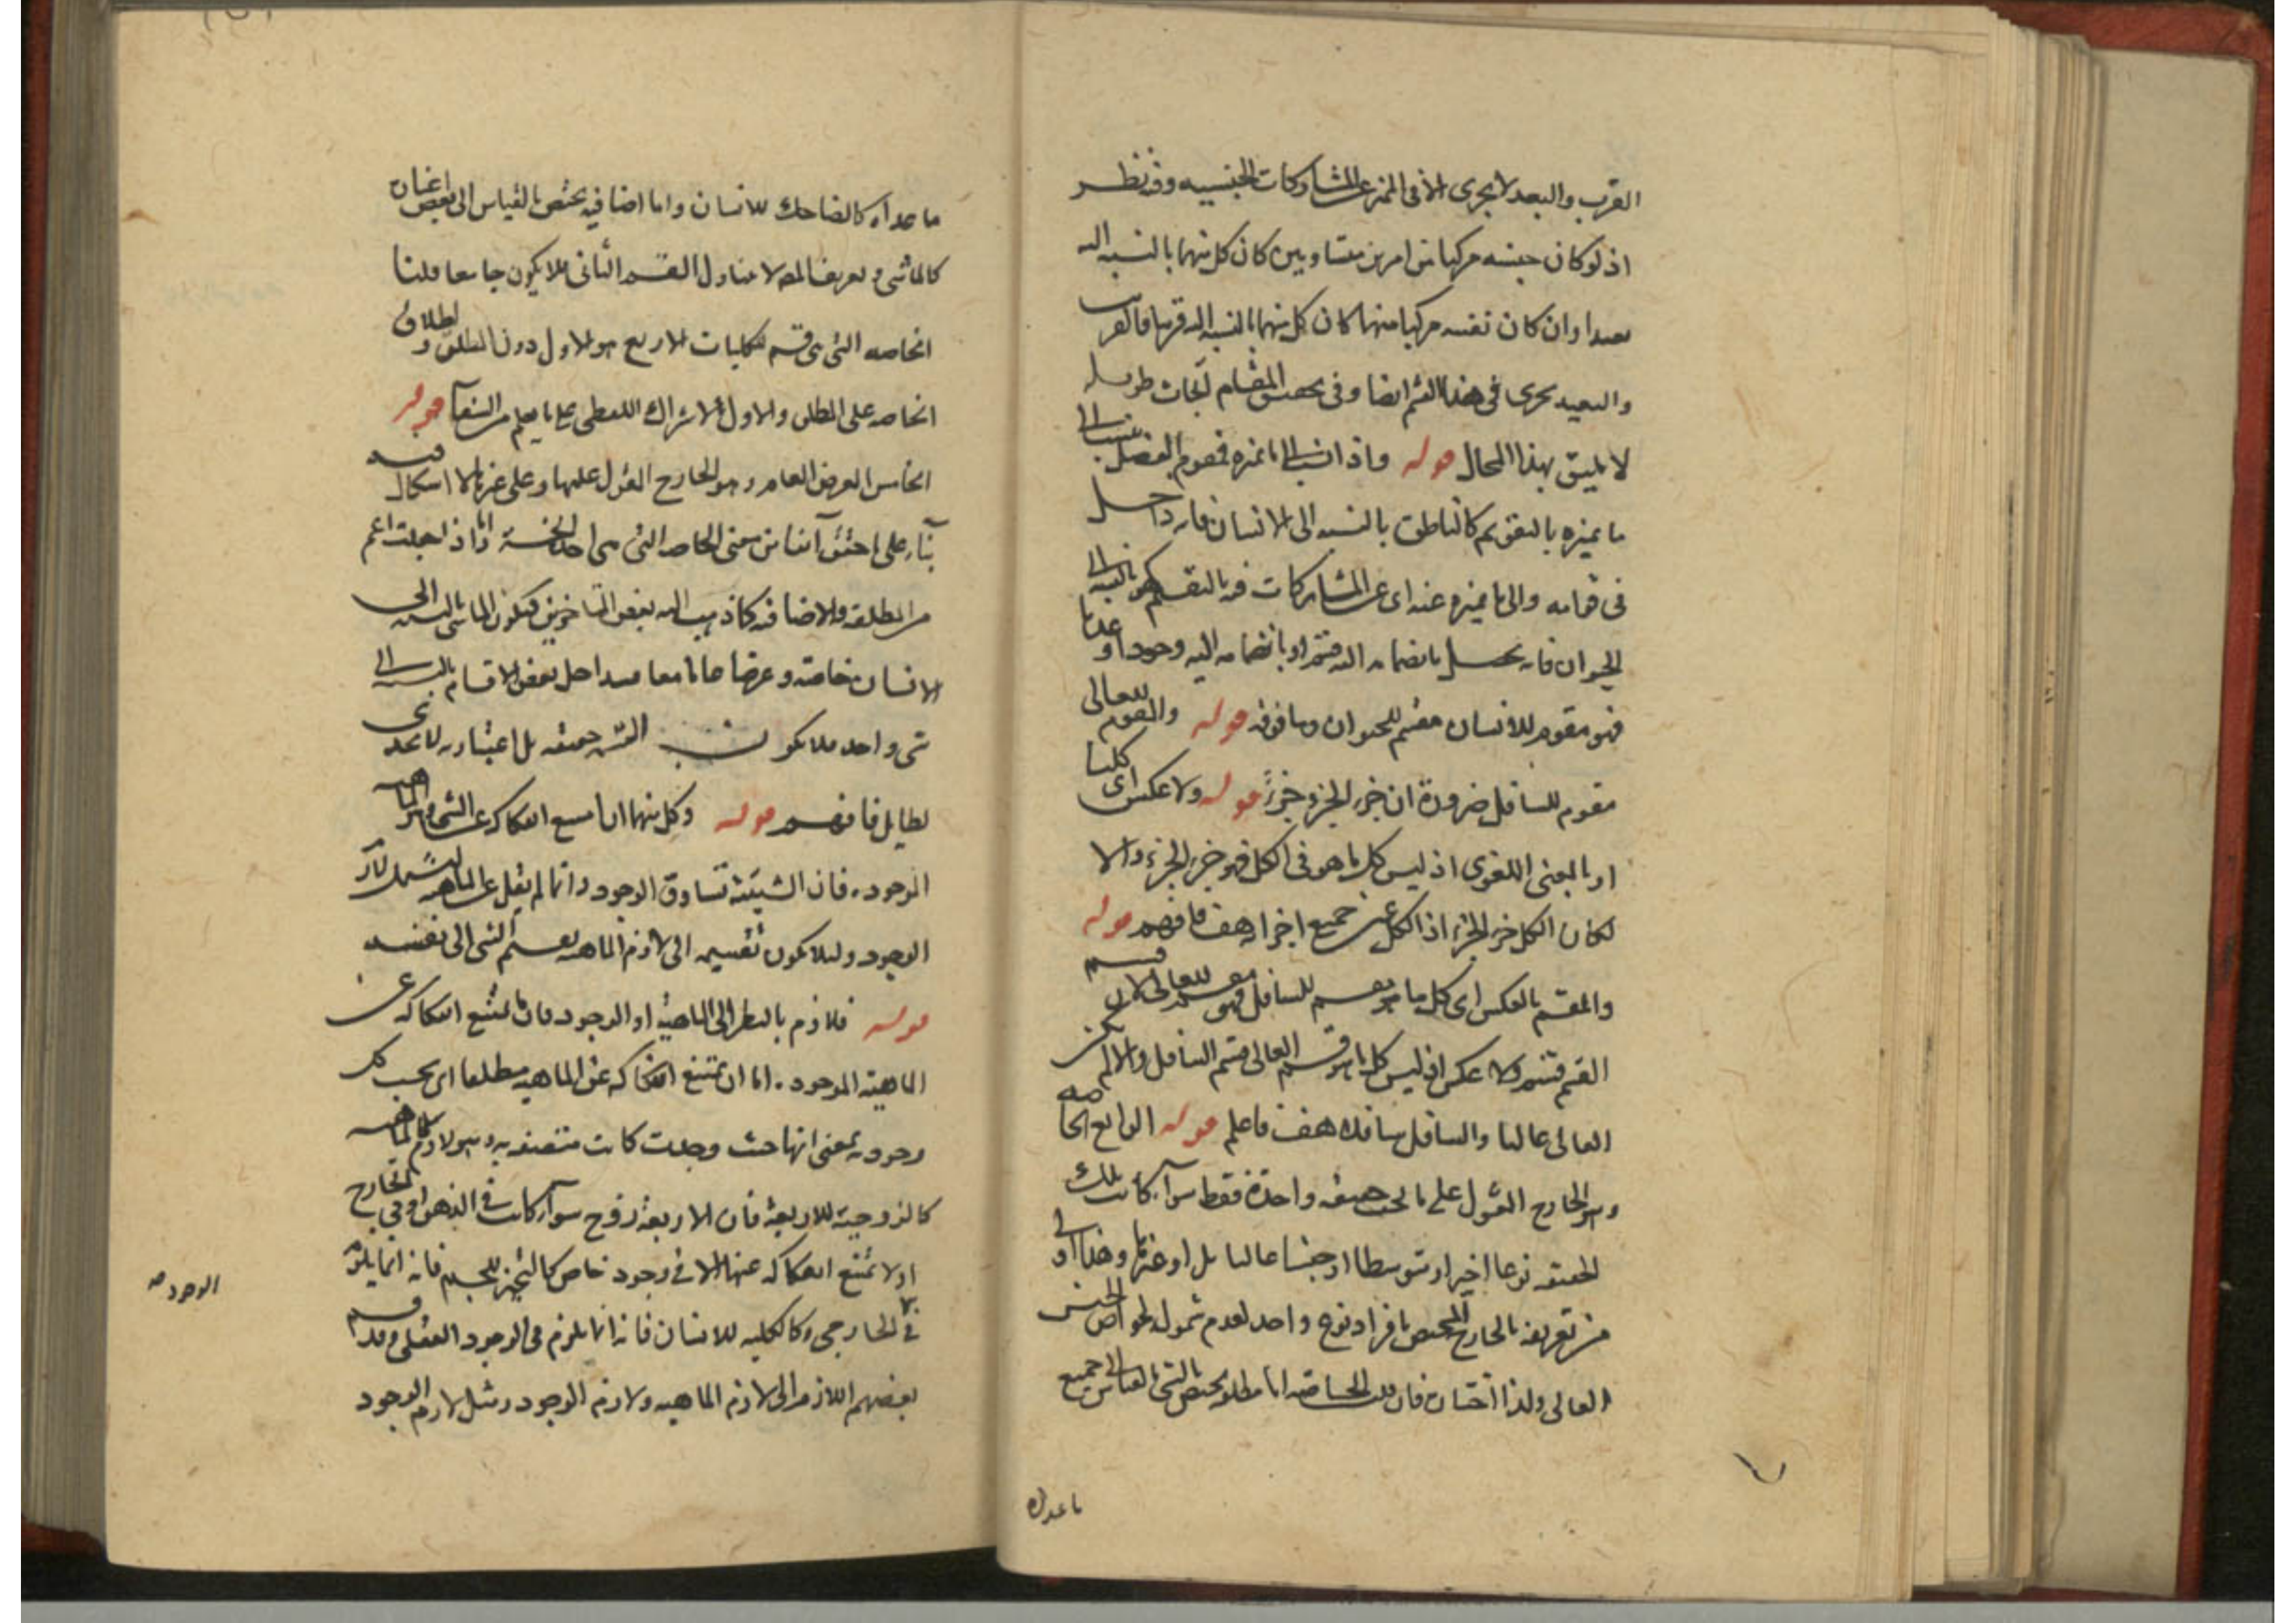 القرب والبعد لا يجرى الا فى المميز عن المشاركات الجنسيه وفيه نظر
اذ لو كان جنسه مركبا من امرين متساويين كان كل منهما بالنسبه اليه
بعيدا وان كان نفسه مركبا منهما كان كل منهما بالنسبه اليه قريبا فالقريب
والبعيد يجرى فى هذا القسم ايضا وفى تحقيق المقام ابحاث طويله
لا يليق بهذا المحال قوله واذا نسب الى ما يميزه فمقوم الفصل ينسب الى
ما يميزه بالتقويم كالناطق بالنسبه الى الانسان فانه داخل
فى قوامه والى ما يميزه عنه اى عن المشاركات فيه بالتقسيم كهو بالنسبه الى
الحيوان فانه يحصل بانضمامه اليه قسم او بانضمامه اليه وجودا وعدما
فهو مقوم للانسان مقسم للحيوان وما فوقه قوله والمقوم للعالى
مقوم للسافل ضرورة ان جزء الجزء جزء قوله ولا عكس اى كليا
او بالمعنى اللغوى اذ ليس كل ما هو فى الكل فهو جزء الجزء والا
لكان الكل جزء الجزء اذ الكل عين جميع اجزائه هف فافهم قوله
والمقسم بالعكس اى كل ما هو مقسم للسافل فهو مقسم للعالى لان قسم
القسم قسم ولا عكس اذ ليس كل ما هو قسم العالى قسم السافل والا لم يكن
العالى عاليا والسافل سافلا هف فاعلم قوله الرابع الخاصه
وهو الخارج المقول على ما تحت حقيقه واحدة فقط سواء كانت تلك
الحقيقه نوعا اخيرا او متوسطا او جنسا عاليا بل او غيرها وهذا اولى
من تعريفه بالخارج المختص بافراد نوع واحد لعدم شموله لخواص الجنس
العالى ولذا اختاره فان قلت الخاصه اما مطلقه يختص بالشئ بالقياس الى جميع
ما عداه
ما عداه كالضاحك للانسان واما اضافيه يختص بالقياس الى بعض اغياره
كالماشى وتعريف المصـ لا يتناول القسم الثانى فلا يكون جامعا قلنا
الخاصه التى هى قسم للكليات الاربع هو الاول دون المطلق واطلاق
الخاصه على المطلق والاول بالاشتراك اللفظى على ما يعلم من الشفاء قوله
الخامس العرض العام وهو الخارج المقول عليها وعلى غيرها لا اشكال فيه
بناء على ما حقق آنفا من معنى الخاصه التى هى احد الخمسة واما اذا جعلت اعم
من المطلقه والاضافيه كما ذهب اليه بعض المتاخرين فيكون الماشى بالنسبه الى
الانسان خاصة وعرضا عاما معا فيتداخل بعض الاقسام بالنسبه الى
شئ واحد فلا يكون القسمه حقيقه بل اعتباريه لا يجدى
لطايل فافهم قوله وكل منهما ان امتنع انفكاكه عن الشئ اى الماهيه
الموجوده فان الشيئية تساوق الوجود وانما لم يقل عن الماهيه ليشمل لازم
الوجود ولئلا يكون تقسيمه الى لازم الماهيه تقسيم الشئ الى نفسه
قوله فلازم بالنظر الى الماهية او الوجود فان ما يمتنع انفكاكه عن
الماهية الموجوده اما ان يمتنع انفكاكه عن الماهيه مطلقا اى بحسب كلا
وجوديه بمعنى انها حيث وجدت كانت متصفه به وهو لازم الماهيه
كالزوجية للاربعة فان الاربعة زوج سواء كانت فى الذهن او فى الخارج
او لا يمتنع انفكاكه عنها الا فى وجود خاص كالتحيز للجسم فانه انما يلزمه
فى الخارجى وكالكليه للانسان فانه انما يلزم فى الوجود العقلى وقد قسم
بعضهم اللازم الى لازم الماهيه ولازم الوجود ومثل لازم الوجود
الوجود صه